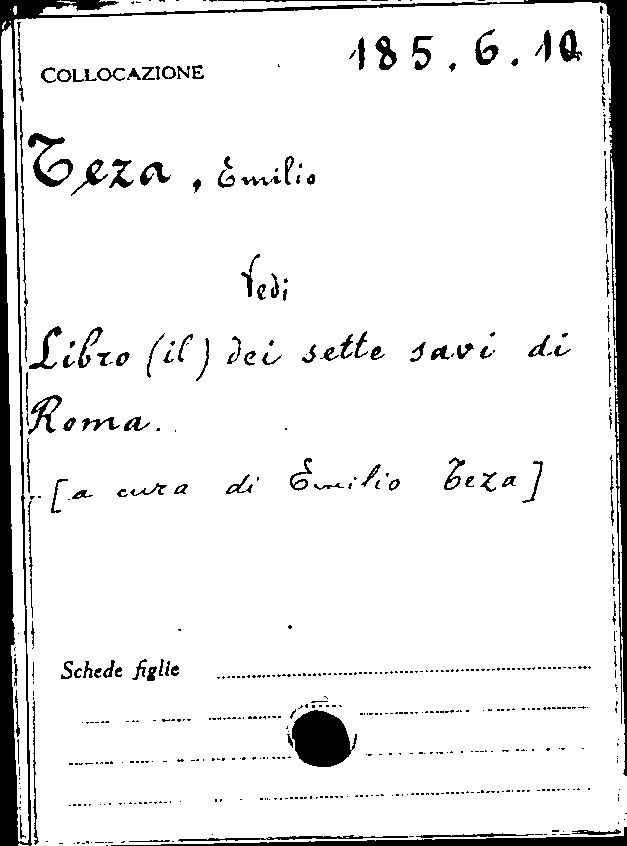 COLLOCAZIONE 185.6.10
Teza, Emilio
Vedi
Libro (il) dei sette savi di
Roma.
[a cura di Emilio Teza]
Schede figlie